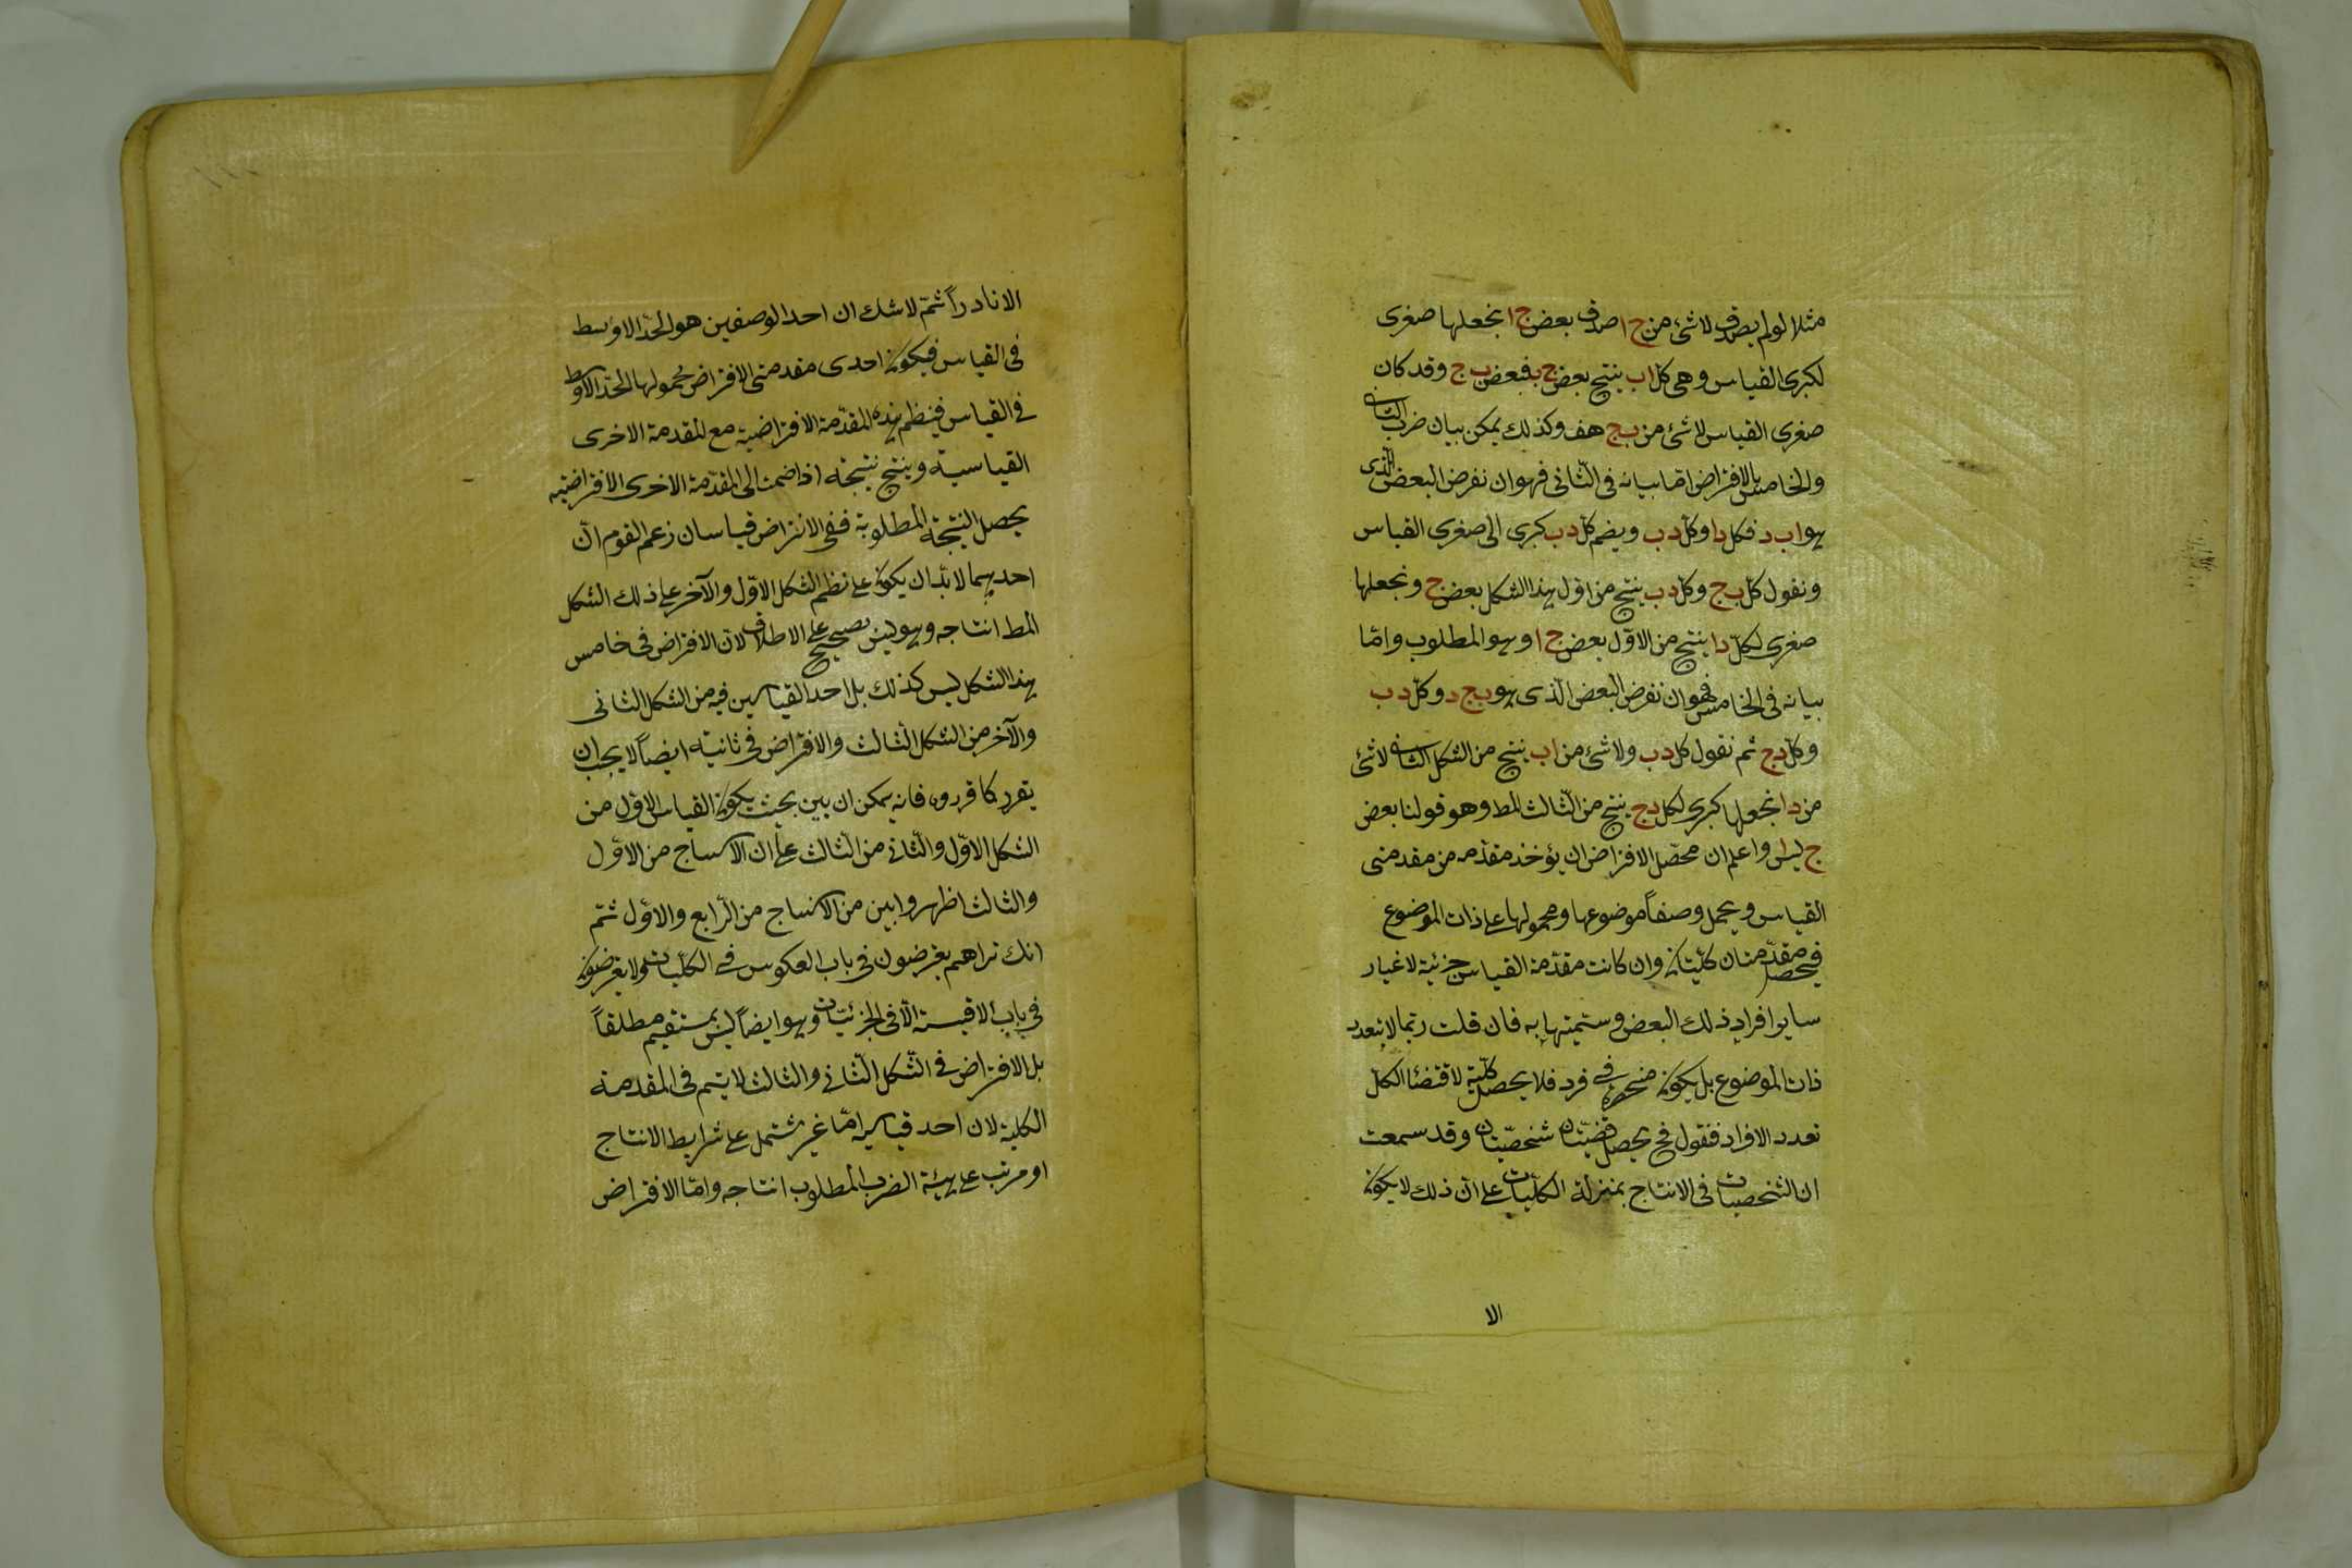 مثلا لو لم يصدق لا شئ من ج ا صدق بعض ج ا نجعلها صغرى
لكبرى القياس وهى كل ا ب ينتج بعض ج ب فبعض ب ج وقد كان
صغرى القياس لا شئ من ب ج هف وكذلك يمكن بيان ضرب الثانى
والخامس بالافتراض اما بيانه فى الثانى فهو ان نفرض البعض الذى
هو ا ب د فكل د ا وكل د ب ويضم كل د ب كبرى الى صغرى القياس
ونقول كل ب ج وكل د ب ينتج من اول هذا الشكل بعض ج ونجعلها
صغرى لكل د ا ينتج من الاول بعض ج ا وهو المطلوب واما
بيانه فى الخامس فهو ان نفرض البعض الذى هو ب ج د وكل د ب
وكل د ج ثم نقول كل د ب ولا شئ من ا ب ينتج من الشكل الثانى لا شئ
من د ا نجعلها كبرى لكل د ج ينتج من الثالث المط وهو قولنا بعض
ج ليس واعلم ان محصل الافتراض ان يؤخذ مقدمه من مقدمتى
القياس ويحمل وصفا موضوعها ومحمولها على ذات الموضوع
فيحصل مقدمتان كليتان وان كانت مقدمة القياس جزئية لاغيار
ساير افراد ذلك البعض وستميتها به فان قلت ربما لا يتعدد
ذات الموضوع بل يكون منحصرة فى فرد فلا يحصل كلية لاقتضا الكل
تعدد الافراد فنقول فح يحصل قضيتان شخصيتان وقد سمعت
ان الشخصيات فى الانتاج بمنزلة الكليات على ان ذلك لا يكون
الا
الا نادراً ثم لا شك ان احد الوصفين هو الحد الاوسط
فى القياس فيكون احدى مقدمتى الافتراض محمولها الحد الاوسط
فى القياس فينظم هذه المقدمة الافتراضية مع المقدمة الاخرى
القياسية وينتج نتيجة اذا ضمت الى المقدمة الاخرى الافتراضية
يحصل النتيجة المطلوبة ففى الافتراض قياسان زعم القوم ان
احدهما لا بد ان يكون على نظم الشكل الاول والآخر على ذلك الشكل
المط انتاجه وهو ليس بصحيح على الاطلاق لان الافتراض فى خامس
هذا الشكل ليس كذلك بل احد القياسين فيه من الشكل الثانى
والآخر من الشكل الثالث والافتراض فى ثانيته ايضاً لا يجب ان
يقرر كما قرروه فانه يمكن ان يبين بحيث يكون القياس الاول من
الشكل الاول والثانى من الثالث على ان الانتاج من الاول
والثالث اظهر وابين من الانتاج من الرابع والاول ثم
انك تراهم يفرضون فى باب العكوس فى الكليات ولا يفرضون
فى باب الاقيسة الا فى الجزئيات وهو ايضاً ليس بمستقيم مطلقاً
بل الافتراض فى الشكل الثانى والثالث لا يتم فى المقدمة
الكلية لان احد قياسيه اما غير مشتمل على شرايط الانتاج
او مرتب على هيئة الضرب المطلوب انتاجه واما الافتراض